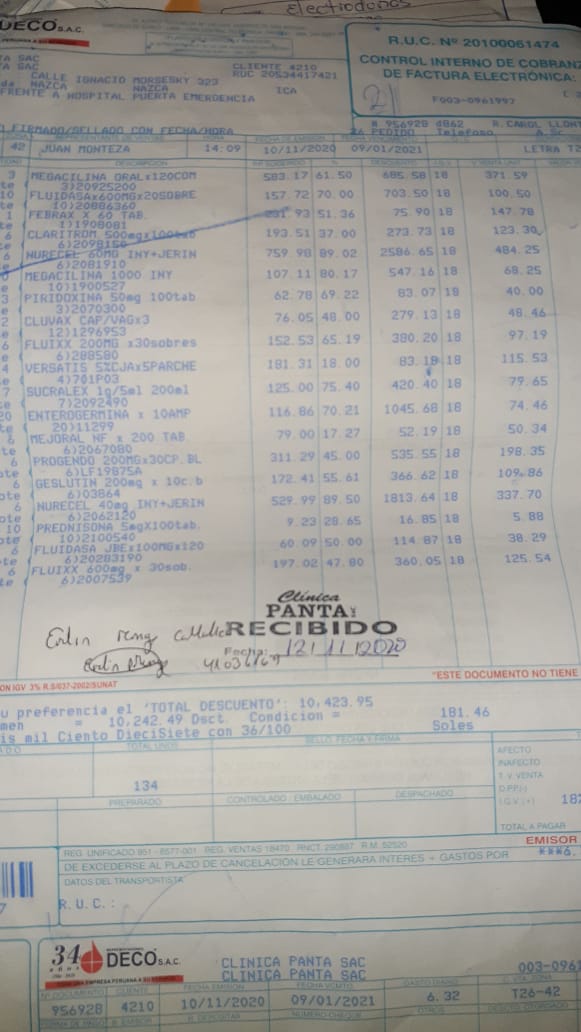 electrodonas
DECO S.A.C.
R.U.C. Nº 20100061474
CONTROL INTERNO DE COBRANZ
DE FACTURA ELECTRÓNICA:
21
F003-0961997
TA SAC
TA SAC
CLIENTE 4210
RUC 20534417421
CALLE IGNACIO MORSESKY 323
NAZCA NAZCA ICA
FRENTE A HOSPITAL PUERTA EMERGENCIA
FIRMADO/SELLADO CON FECHA/HORA
# 956928 d862 R.CAROL LLONT
26 PEDIDO Telefoso A.Sc.
REPRESENTANTE DE VENTAS HORA FECHA DE EMISION
42 JUAN MONTEZA 14:09 10/11/2020 09/01/2021 LETRA T2
DESCRIPCION P.P. SUGERIDO % DESCUENTO I.G.V. P.VENTA UNIT.
3 MEGACILINA ORALx120COM 583.17 61.50 685.58 18 371.59
te ( 3)20925200
10 FLUIDASAx600MGx20SOBRE 157.72 70.00 703.50 18 100.50
te ( 10)20886360
1 FEBRAX X 60 TAB. 231.93 51.36 75.90 18 147.78
te ( 1)1908081
6 CLARITROM 500mgx100tab 193.51 37.00 273.73 18 123.30
e ( 6)2098150
6 NURECEL 60MG INY+JERIN 759.98 89.02 2586.65 18 484.25
e ( 6)2081910
MEGACILINA 1000 INY 107.11 80.17 547.16 18 68.25
10)1900527
3 PIRIDOXINA 50mg 100tab 62.78 69.22 83.07 18 40.00
e ( 3)2070300
2 CLUVAX CAP/VAGx3 76.05 48.00 279.13 18 48.46
e ( 12)1296953
6 FLUIXX 200MG x30sobres 152.53 65.19 380.20 18 97.19
e ( 6)288580
4 VERSATIS 5%CJAx5PARCHE 181.31 18.00 83.18 18 115.53
te ( 4)701P03
7 SUCRALEX 1g/5ml 200ml 125.00 75.40 420.40 18 79.65
te ( 7)2092490
20 ENTEROGERMINA x 10AMP 116.86 70.21 1045.68 18 74.46
te ( 20)11299
6 MEJORAL NF x 200 TAB. 79.00 17.27 52.19 18 50.34
te ( 6)2067080
6 PROGENDO 200MGx30CP.BL 311.29 45.00 535.55 18 198.35
ote ( 6)LF19875A
6 GESLUTIN 200mg x 10c.b 172.41 55.61 366.62 18 109.86
ote ( 6)03864
6 NURECEL 40mg INY+JERIN 529.99 89.50 1813.64 18 337.70
ote ( 6)2062120
10 PREDNISONA 5mgX100tab. 9.23 28.65 16.85 18 5.88
ote ( 10)2100540
6 FLUIDASA JBEx100MGx120 60.09 50.00 114.87 18 38.29
ote ( 6)20283190
6 FLUIXX 600mg x 30sob. 197.02 47.80 360.05 18 125.54
te ( 6)2007539
Clínica
PANTA
RECIBIDO
Fecha: 12/11/2020
ON IGV 3% R.S/037-2002/SUNAT
"ESTE DOCUMENTO NO TIENE
u preferencia el 'TOTAL DESCUENTO': 10,423.95
men = 10,242.49 Dsct. Condicion = 181.46
is mil Ciento DieciSiete con 36/100 Soles
TOTAL UNDS SELLO, FECHA Y FIRMA
134
AFECTO
INAFECTO
T. V. VENTA
D.P.P.(-)
I.G.V. (+) 18
TOTAL A PAGAR
PREPARADO CONTROLADO / EMBALADO DESPACHADO
EMISOR
REG. UNIFICADO 951 - 6577-001 REG. VENTAS 18470 RNCT. 290887 R.M. 52520
DE EXCEDERSE AL PLAZO DE CANCELACIÓN LE GENERARA INTERES + GASTOS POR ***6.
DATOS DEL TRANSPORTISTA
R.U.C.:
34 años
DECO S.A.C.
UNA EMPRESA PERUANA A SU SERVICIO
CLINICA PANTA SAC
CLINICA PANTA SAC
003-0961
Nº DOCUMENTO CLIENTE FECHA EMISION FECHA VCMTO GASTO DIARIO VTA. ZONA
956928 4210 10/11/2020 09/01/2021 6.32 T26-42
FORMA DE PAGO B. EMISOR B. DEPOSITAR NUMERO CHEQUE OTROS DSCTO. OTORGADO